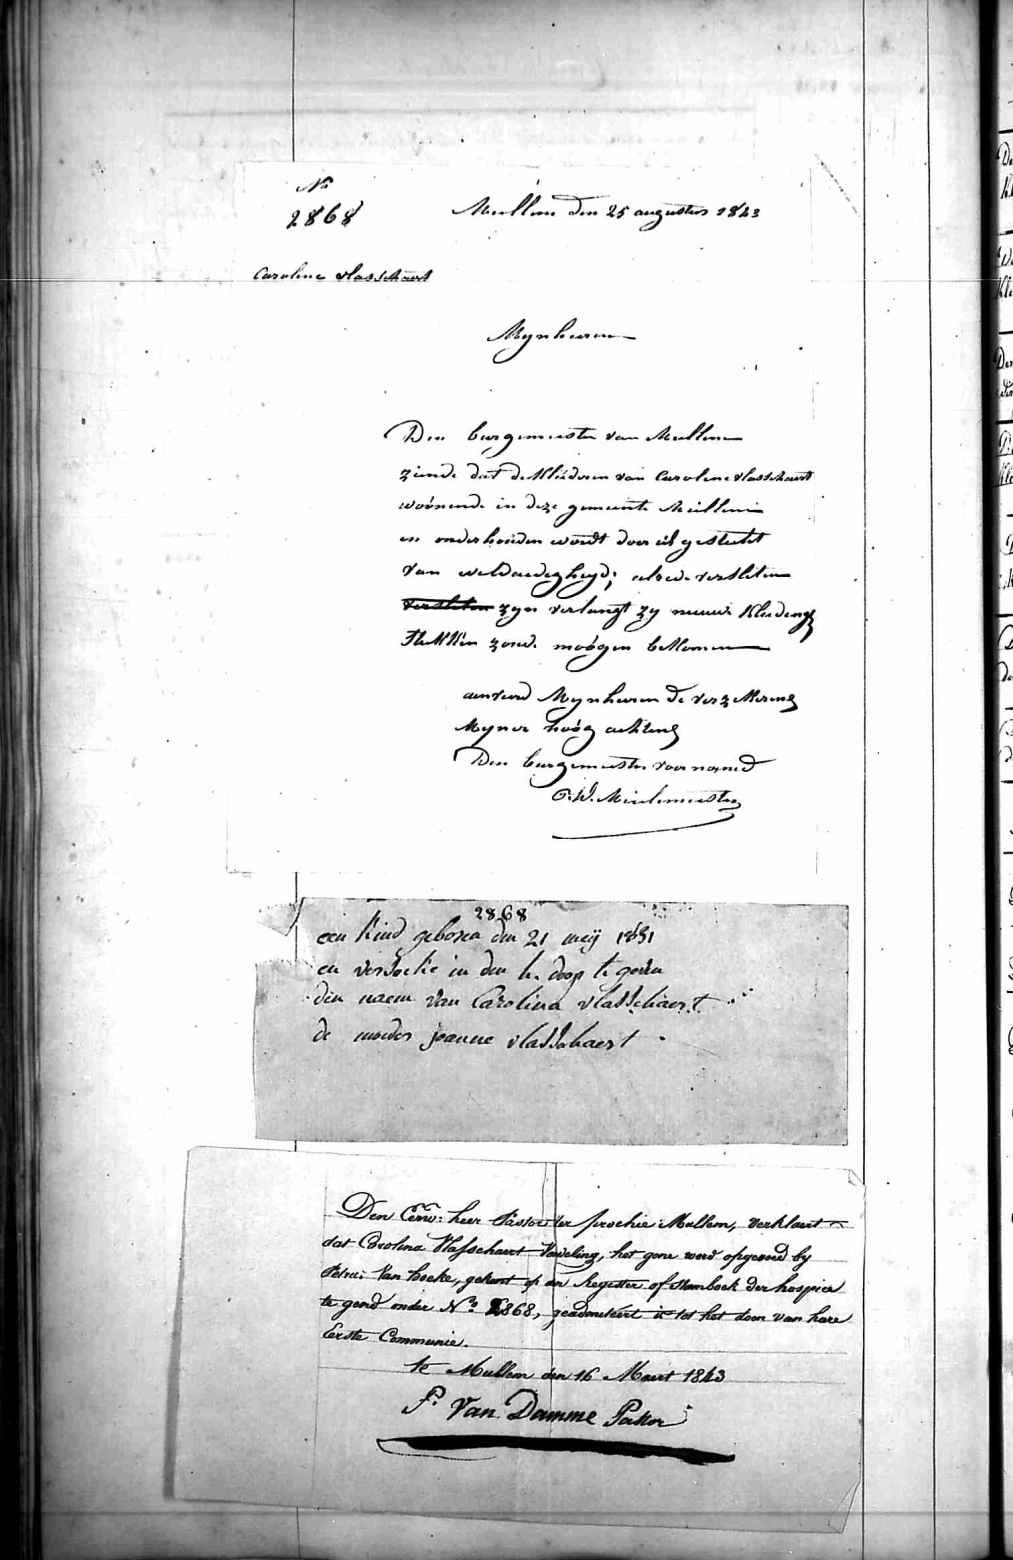 No
2868
Mullem den 25 augustus 1843
Caroline vlasschaert
Mynheeren
Den burgemeester van Mullem
ziende dat de Kleederen van Caroline vlasschaert
woónende in deze gemeente Mullem
en onderhouden wordt door úl gesticht
van weldaedigheyd; alrede versleten
versleten zyn verlangt zy nieuwe Kleedeng
stukken zoude moógen bekomen
aenveerd Mynheeren de verzekereng
Myner hoóg achteng
Den burgemeester voornomd
2868
een kind geboren den 21 mey 1831
en versoeke in den h. doop te geven
den naem van Carolina vlasschaert
de moeder joanne vlasschaert
Den Eerw: heer Pastor der prochie Mullem, verklaert
dat Carolina Vlasschaert Vondeling, het gene werd opgevoed by
Petrus Van hoeke, gekent op den Register of Stamboek der hospicie
te gend onder No 2868, geadmitteert is tot het doen van hare
Eerste Communie.
te Mullem den 16 Maert 1843
P. Van Damme Pastor